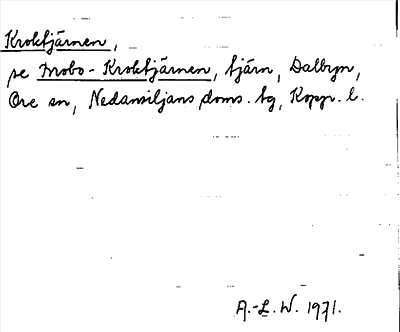 Kroktjärnen,
se Mobo-Kroktjärnen, tjärn, Dalbyn,
Ore sn, Nedansiljans doms. tg, Kopp. l.
A.-L. W. 1971.